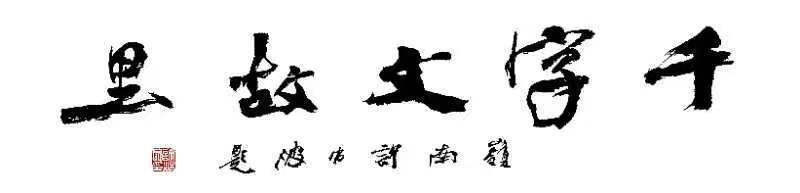 千字文故里
嶺南許習波題